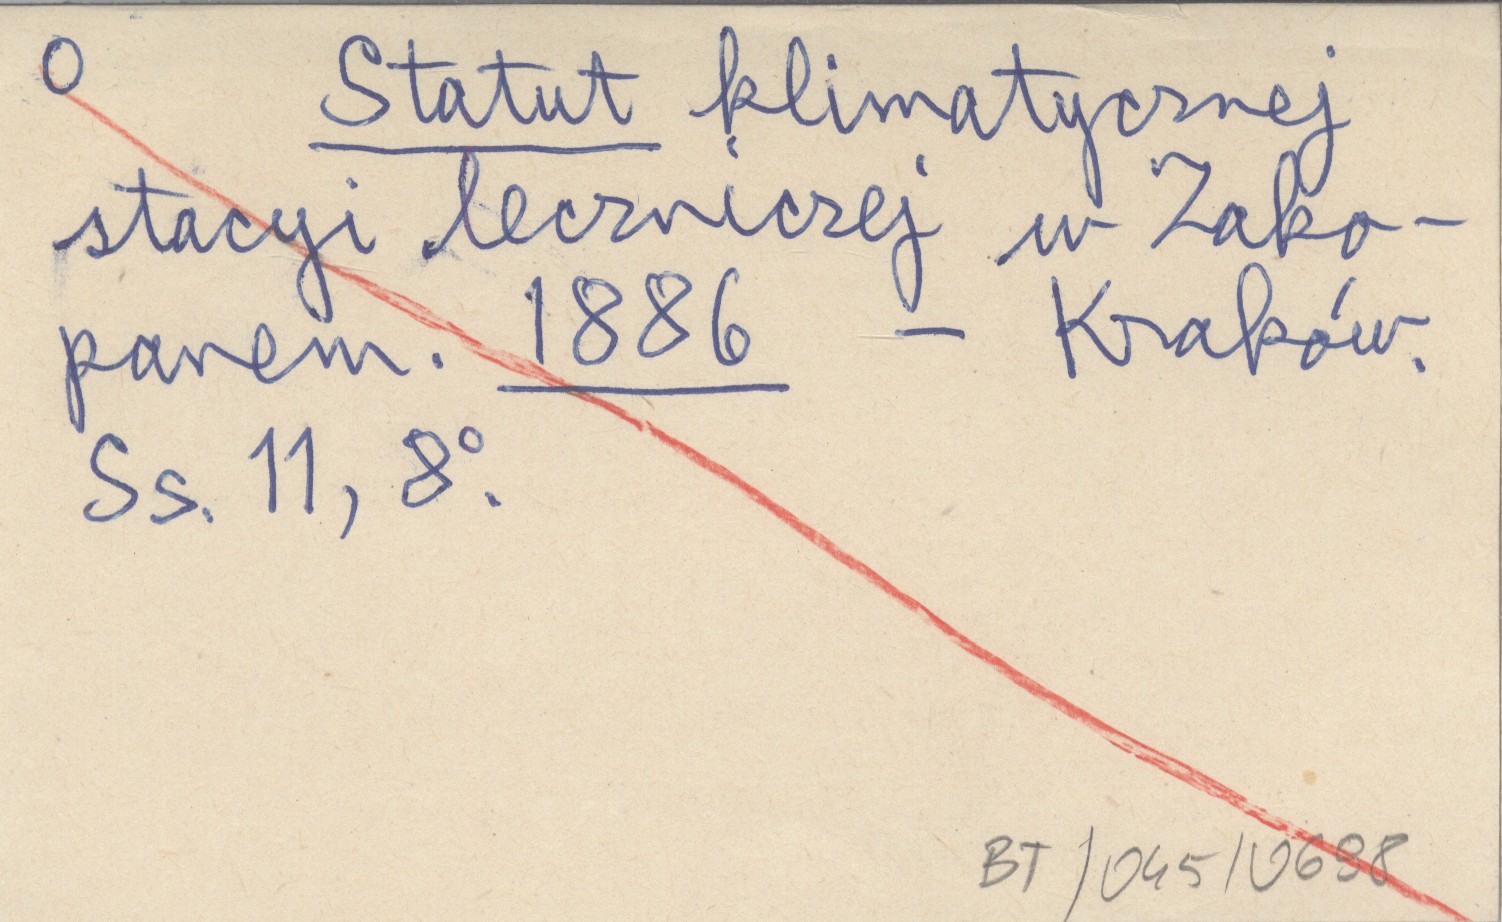 O Statut klimatycznej
stacyi leczniczej w Zako-
panem. 1886 – Kraków.
Ss. 11, 8°.
BT/045/0698